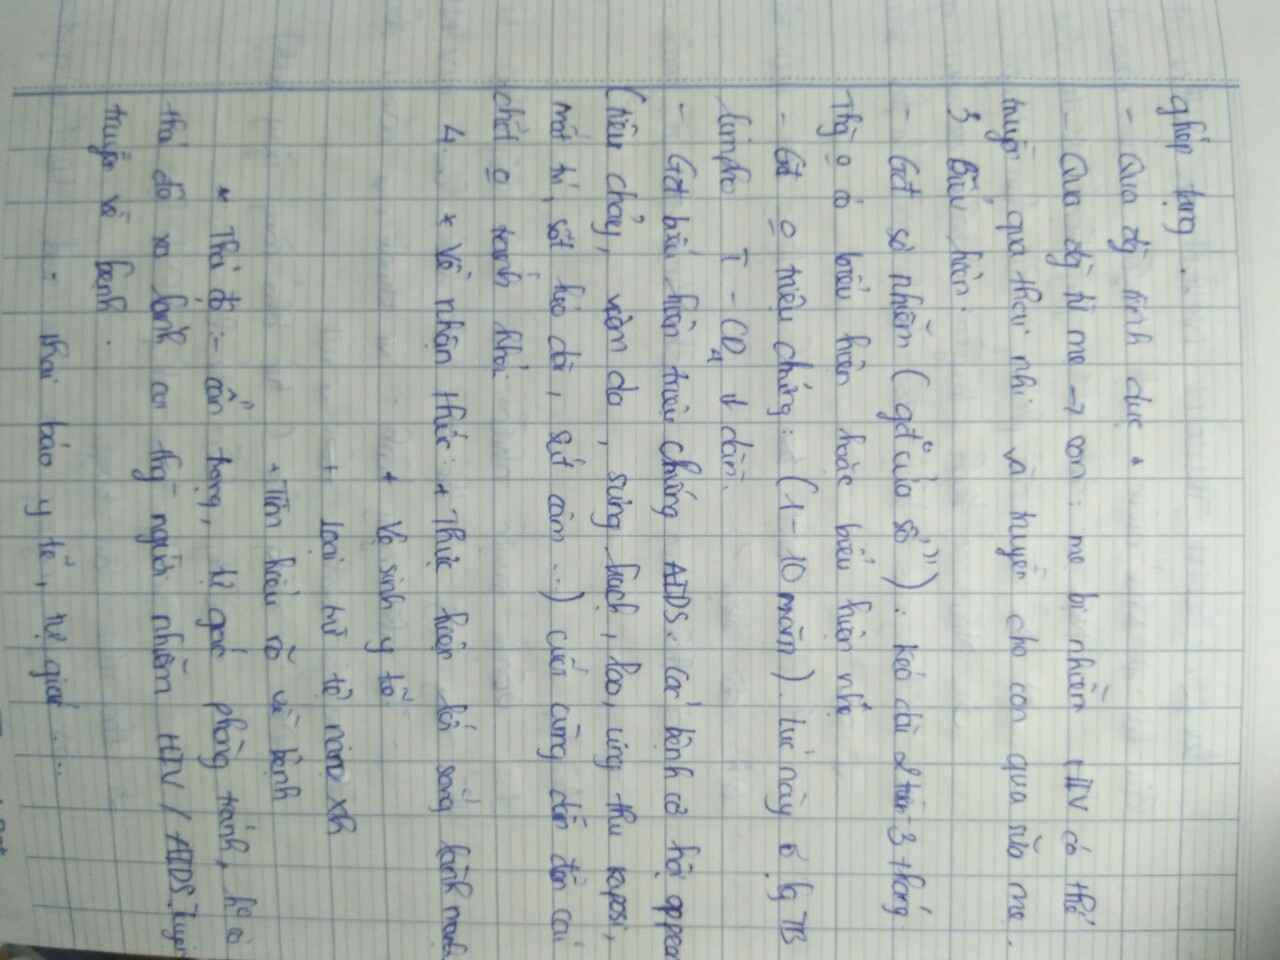 ghép tạng.
- Qua đg tình dục.
- Qua đg từ mẹ → con: mẹ bị nhiễm HIV có thể
truyền qua thai nhi và truyền cho con qua sữa mẹ.
3 Biểu hiện:
- Gđ sơ nhiễm (gđ "cửa sổ"): kéo dài 2 tuần-3 tháng.
Thg o có biểu hiện hoặc biểu hiện nhẹ
- Gđ o triệu chứng: (1-10 năm). Lúc này số lg TB
limpho T-CD4 ↓ dần.
- Gđ biểu hiện triệu chứng AIDS: các bệnh cơ hội appear
(tiêu chảy, viêm da, sưng hạch, lao, ung thư kaposi,
mất trí, sốt kéo dài, sút cân...) cuối cùng dẫn đến cái
chết o tránh khỏi.
4. * Về nhận thức: + Thực hiện lối sống lành mạnh
+ Vệ sinh y tế
+ loại trừ tệ nạn xh
+ Tìm hiểu rõ về bệnh
* Thái độ: - cẩn trọng, tự giác phòng tránh,
thái độ xa lánh thg người nhiễm HIV/AIDS,
truyền về bệnh.
- khai báo y tế, tự giác...